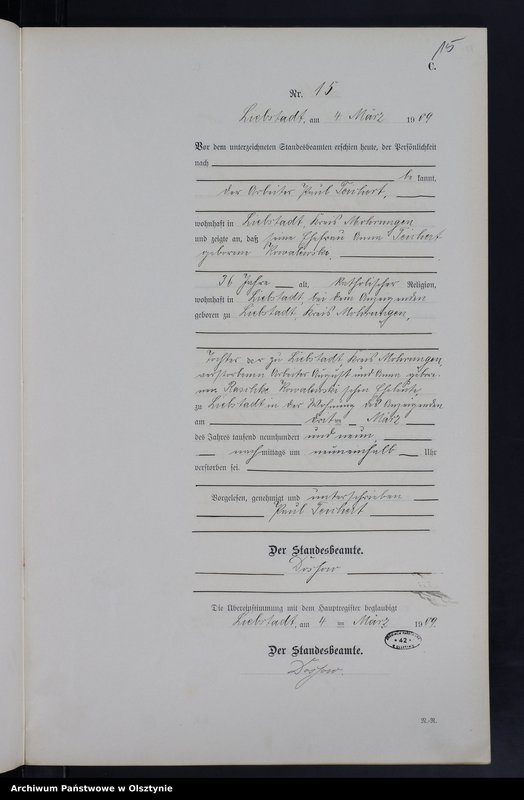 15
C.
Nr. 15
Liebstadt, am 4 März 1909
Vor dem unterzeichneten Standesbeamten erschien heute, der Persönlichkeit
nach
be kannt,
der Arbeiter Paul Teuchert,
wohnhaft in Liebstadt, Kreis Mohrungen
und zeigte an, daß seine Ehefrau Anna Teuchert
geborene Kowalewski,
36 Jahre alt, katholischer Religion,
wohnhaft in Liebstadt, bei dem Anzeigenden
geboren zu Liebstadt, Kreis Mohrungen,
Tochter der zu Liebstadt, Kreis Mohrungen,
verstorbenen Arbeiter August und Anna gebore-
nen Kowalewski'schen Eheleute,
zu Liebstadt in der Wohnung des Anzeigenden
am dritten März
des Jahres tausend neunhundert und neun,
nachmittags um neuneinhalb Uhr
verstorben sei.
Vorgelesen, genehmigt und unterschrieben
Paul
Der Standesbeamte.
Die Übereinstimmung mit dem Hauptregister beglaubigt
Liebstadt, am 4 ten März 1909.
Der Standesbeamte.
42
N.-R.
Archiwum Państwowe w Olsztynie